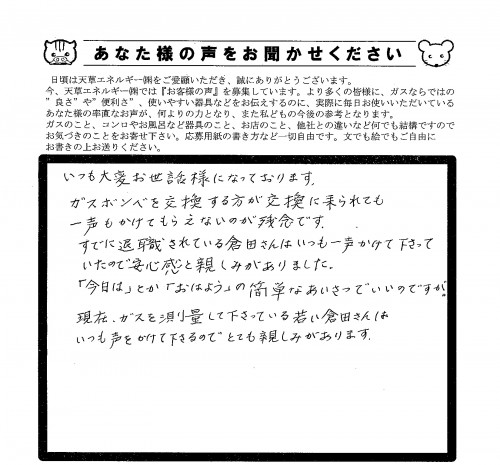 あなた様の声をお聞かせください
日頃は天草エネルギー㈱をご愛願いただき、誠にありがとうございます。
今、天草エネルギー㈱では『お客様の声』を募集しています。より多くの皆様に、ガスならではの
"良さ"や"便利さ"、使いやすい器具などをお伝えするのに、実際に毎日お使いいただいている
あなた様の率直なお声が、何よりの力となり、また私どもの今後の参考となります。
ガスのこと、コンロやお風呂など器具のこと、お店のこと、他社との違いなど何でも結構ですので
お気づきのことをお寄せ下さい。応募用紙の書き方など一切自由です。文でも絵でもご自由に
お書きの上お送りください。
いつも大変お世話様になっております。
ガスボンベを交換する方が交換に来られても
一声もかけてもらえないのが残念です。
すでに退職されている倉田さんはいつも一声かけて下さって
いたので安心感と親しみがありました。
「今日は」とか「おはよう」の簡単なあいさつでいいのですが。
現在、ガスを測量して下さっている若い倉田さんは
いつも声をかけて下さるのでとても親しみがあります。